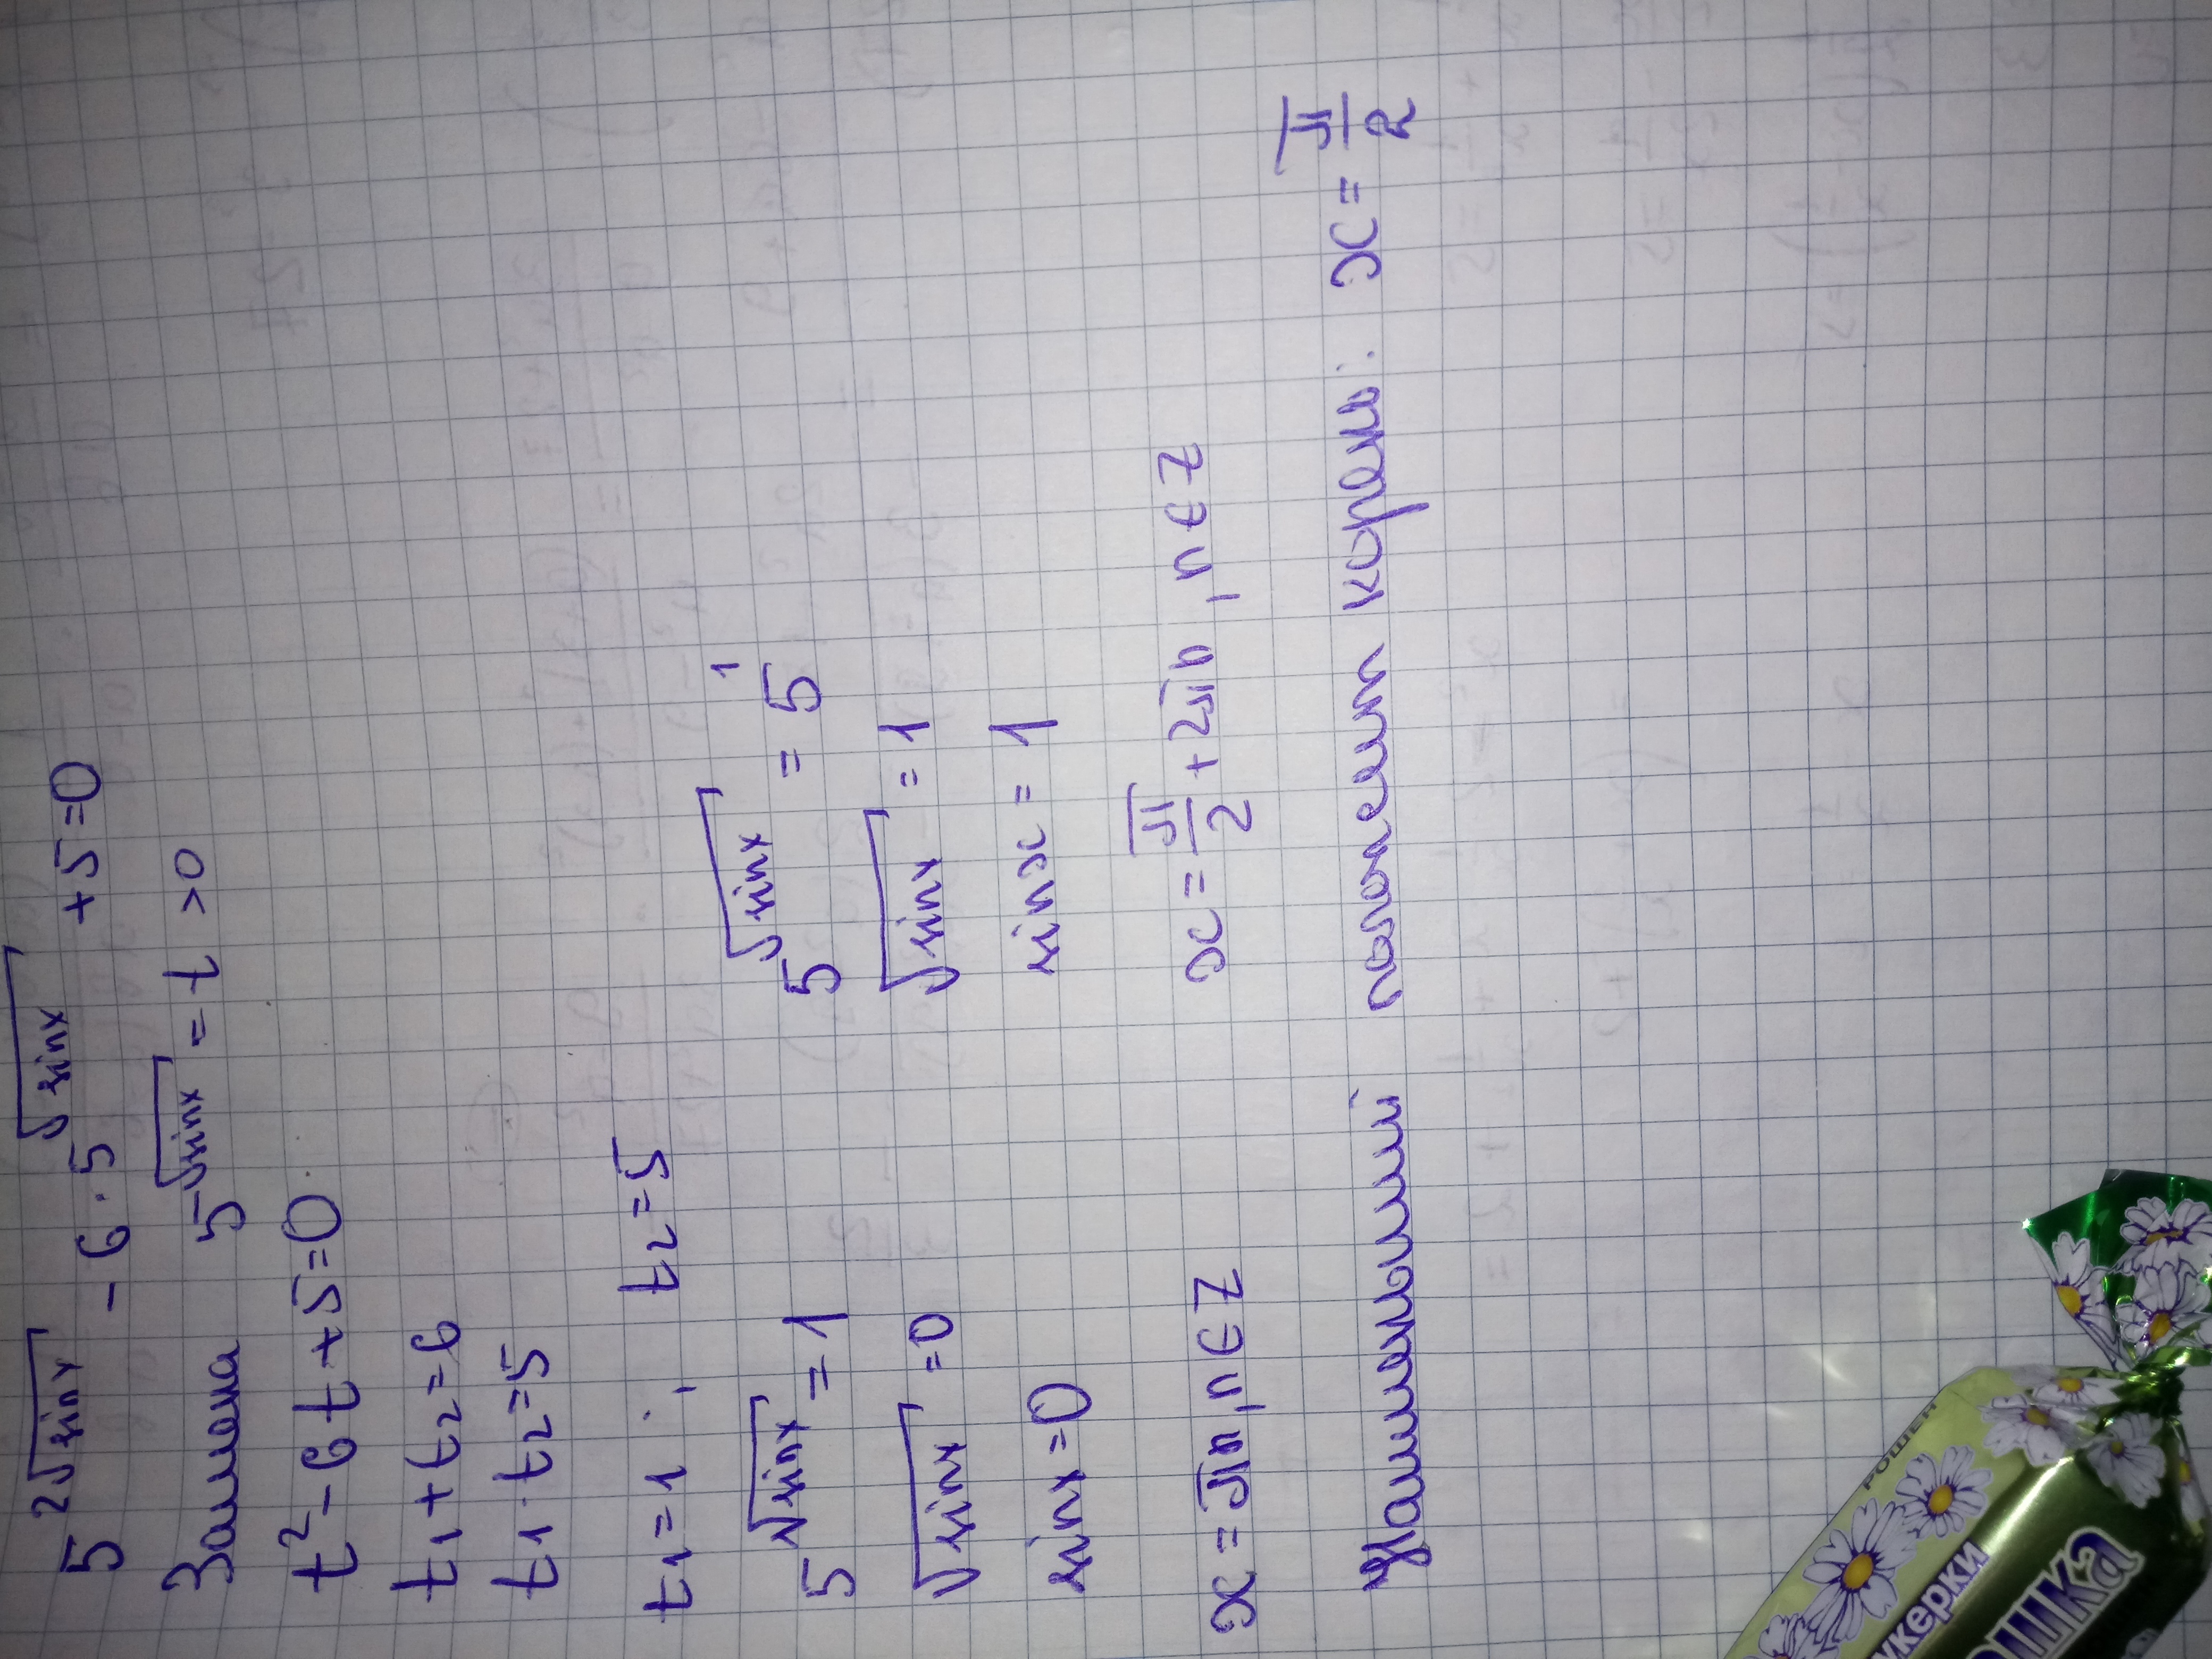 5^{2√sinx} - 6 · 5^{√sinx} + 5 = 0
Замена 5^{√sinx} = t > 0
t² - 6t + 5 = 0
t₁ + t₂ = 6
t₁ · t₂ = 5
t₁ = 1 ; t₂ = 5
5^{√sinx} = 1 5^{√sinx} = 5¹
√sinx = 0 √sinx = 1
sinx = 0 sinx = 1
x = πn, n ∈ Z x = π/2 + 2πn, n ∈ Z
Найменший корень: x = π/2
РОШЕН
укерки
ошка